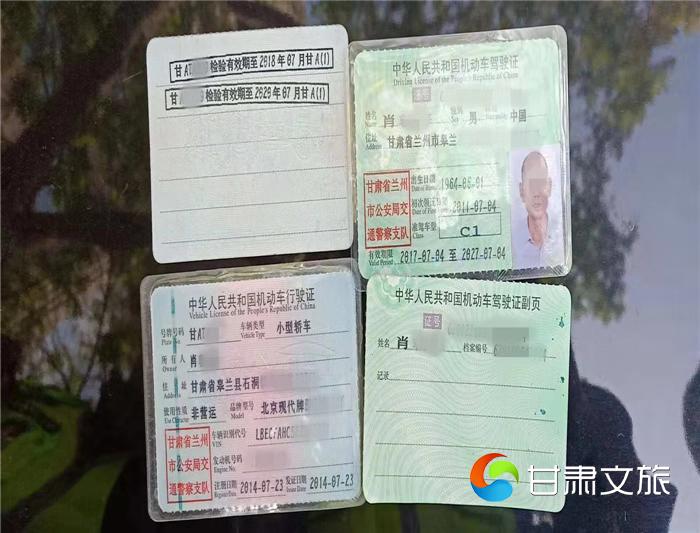 甘AT 检验有效期至2018年07月甘A(1)
检验有效期至2020年07月甘A(1)
中华人民共和国机动车驾驶证
Driving License of the People's Republic of China
证号
姓名 肖 性别 男 中国
Name Sex
住址 甘肃省兰州市皋兰
Address
甘肃省兰州
市公安局交
通警察支队
出生日期 1964-06-01
初次领证日期 2011-07-04
准驾车型 C1
Class
有效期限 2017-07-04 至 2027-07-04
Valid Period
中华人民共和国机动车行驶证
Vehicle License of the People's Republic of China
号牌号码 甘AT 车辆类型 小型轿车
Plate No. Vehicle Type
所有人 肖
Owner
住址 甘肃省皋兰县石洞
Address
使用性质 非营运 品牌型号 北京现代牌
Use Character Model
甘肃省兰州
市公安局交
通警察支队
车辆识别代号 LBECFAHC
VIN
发动机号码
Engine No.
注册日期 2014-07-23 发证日期 2014-07-23
Register Date Issue Date
中华人民共和国机动车驾驶证副页
证号
姓名 肖 档案编号
Name
记录
甘肃文旅